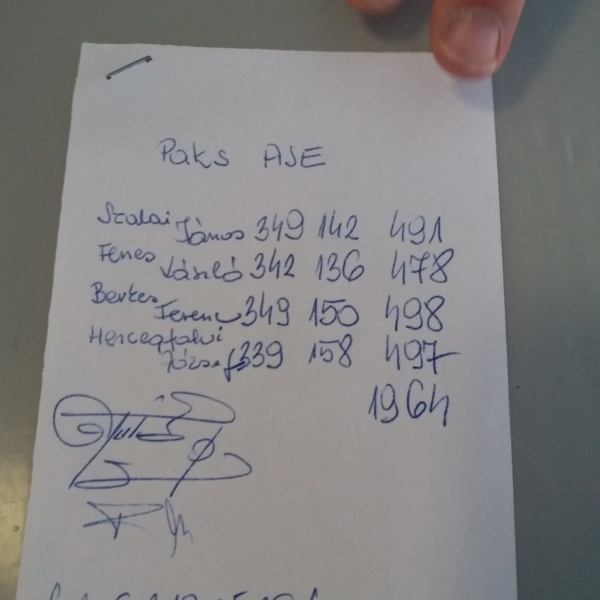 Paks ASE
Szalai János 349 142 491
Fenes László 342 136 478
Berkes Ferenc 349 150 498
Hercegfalvi József 339 158 497
1964